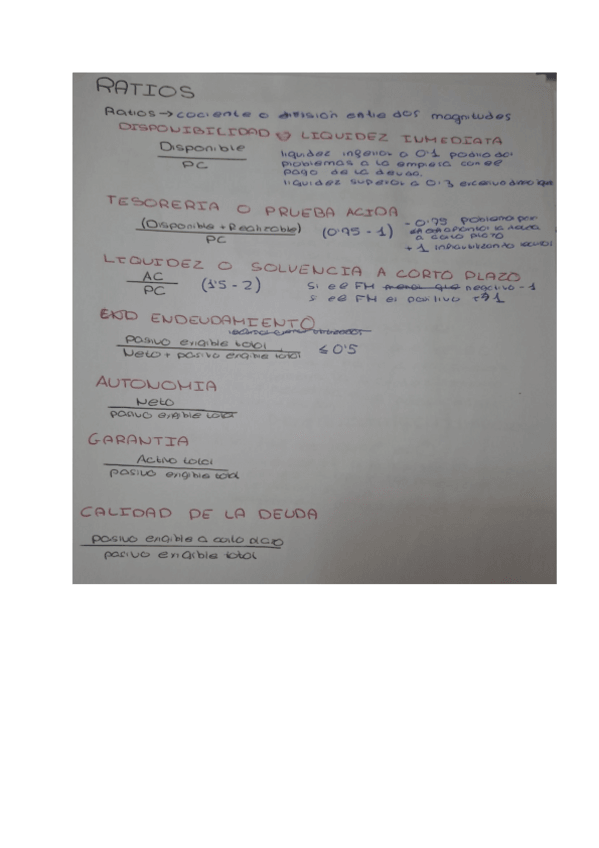 RATIOS
Ratios → cociente o división entre dos magnitudes
DISPONIBILIDAD O LIQUIDEZ INMEDIATA
Disponible
PC
liquidez inferior a 0.1 podria dar
problemas a la empresa con el
pago de la deuda.
liquidez superior a 0.3 excesivo
TESORERIA O PRUEBA ACIDA
(Disponible + Realizable)
PC
(0'75 - 1)
- 0.75 problema por
la deuda
a corto plazo
+ 1
LIQUIDEZ O SOLVENCIA A CORTO PLAZO
AC
PC
(1'5 - 2)
Si el FM menor que negativo - 1
si el FM es positivo +1
END ENDEUDAMIENTO
pasivo exigible total
Neto + pasivo exigible total
≤ 0'5
AUTONOMIA
Neto
pasivo exigible total
GARANTIA
Activo total
pasivo exigible total
CALIDAD DE LA DEUDA
pasivo exigible a corto plazo
pasivo exigible total